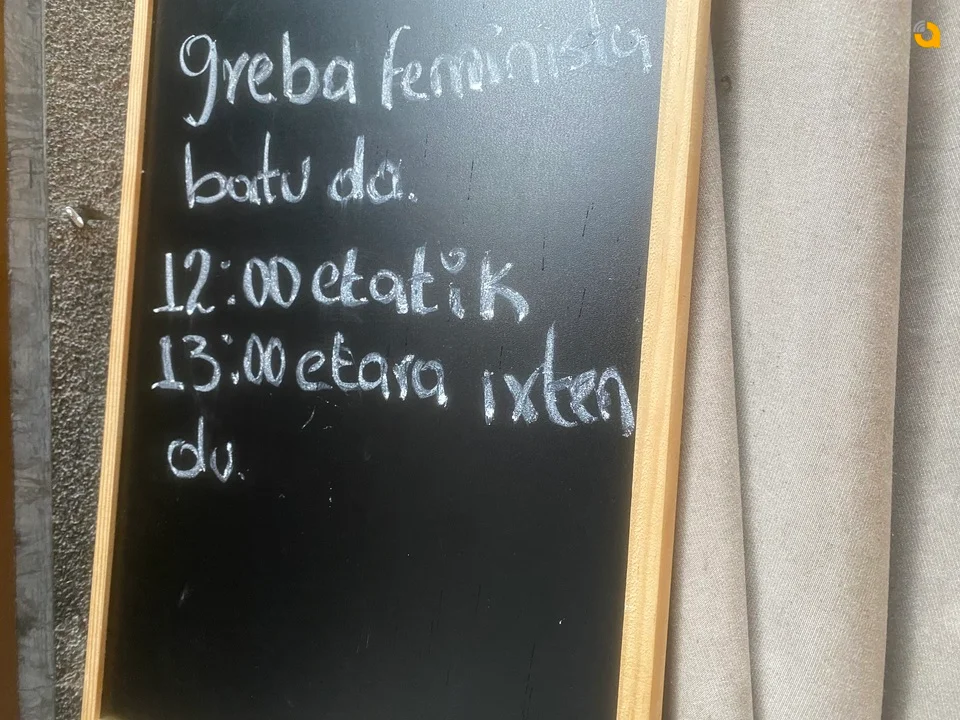 greba feminista
batu da.
12:00 etatik
13:00 etara ixten
du.